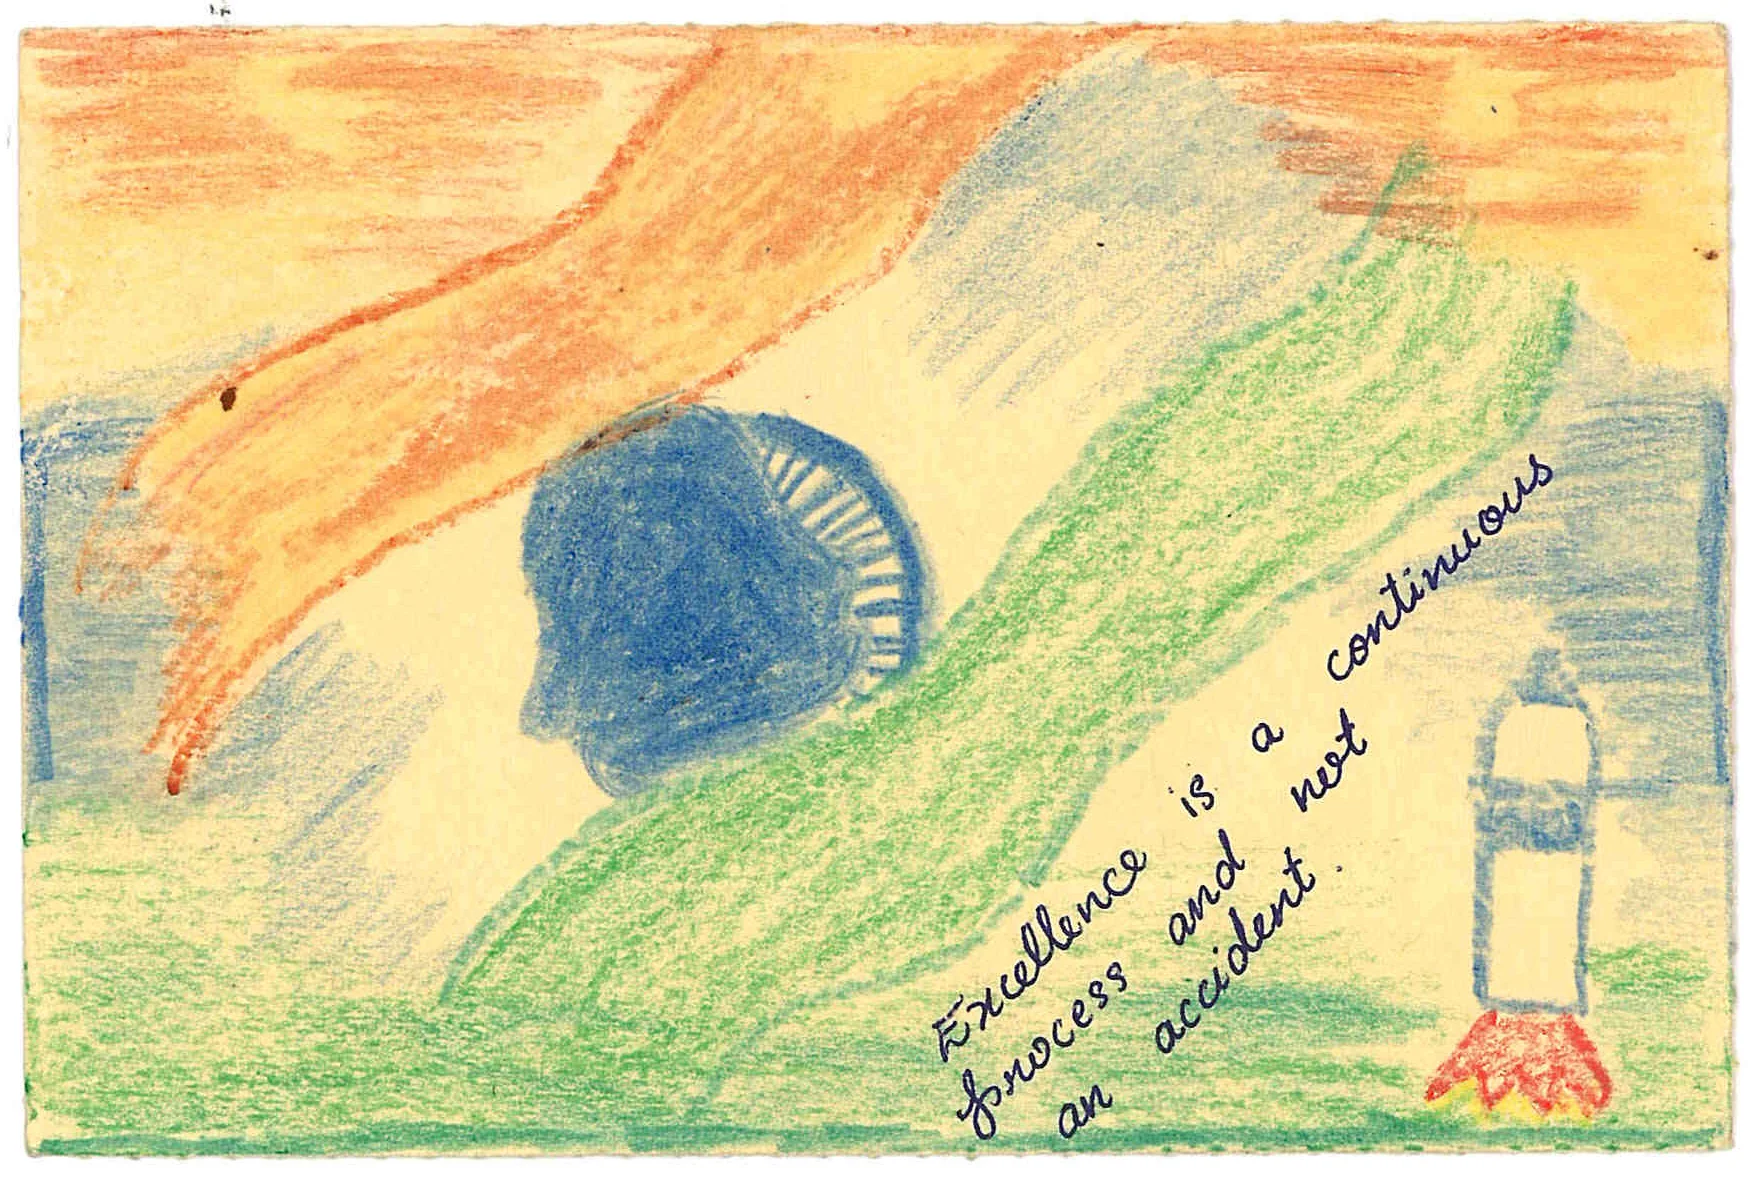 Excellence is a continuous
process and not
an accident.